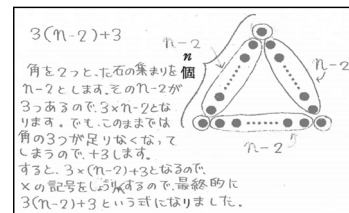 3(n-2)+3
角を2つとった石の集まりを
n-2とします。そのn-2が
3つあるので、3×n-2とな
ります。でも、このままでは
角の3つが足りなくなって
しまうので、+3します。
すると、3×(n-2)+3となるので、
×の記号をしょうりゃくするので、最終的に
3(n-2)+3という式になりました。
n個
n-2
n-2
n-2